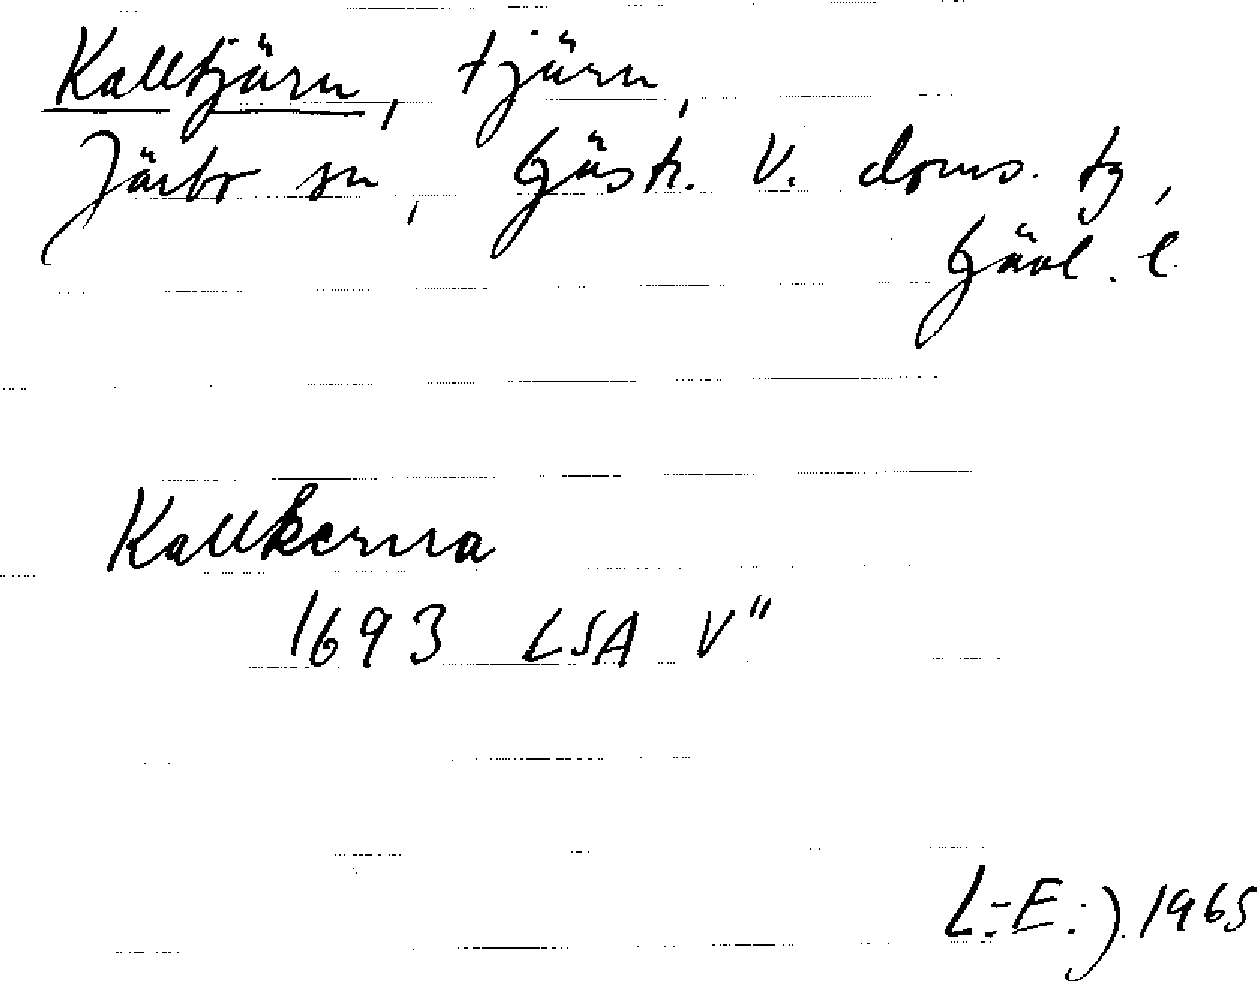 Kalltjärn, tjärn,
Järbo sn, Gästr. V. doms. tg,
Gävl. l.
Kallkerna
1693 LSA V"
L.-E. J. 1965